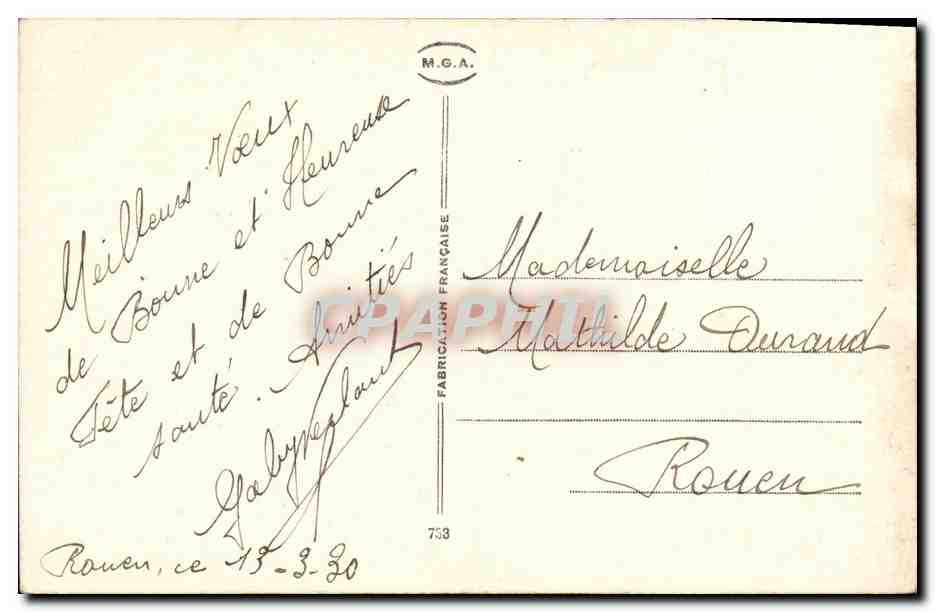 M.G.A.
Meilleurs Vœux
de Bonne et Heureuse
Fête et de Bonne
santé. Amitiés
Gaby
Rouen, le 13-3-30
FABRICATION FRANÇAISE
CPAPHIL
Mademoiselle
Mathilde Durand
Rouen
753